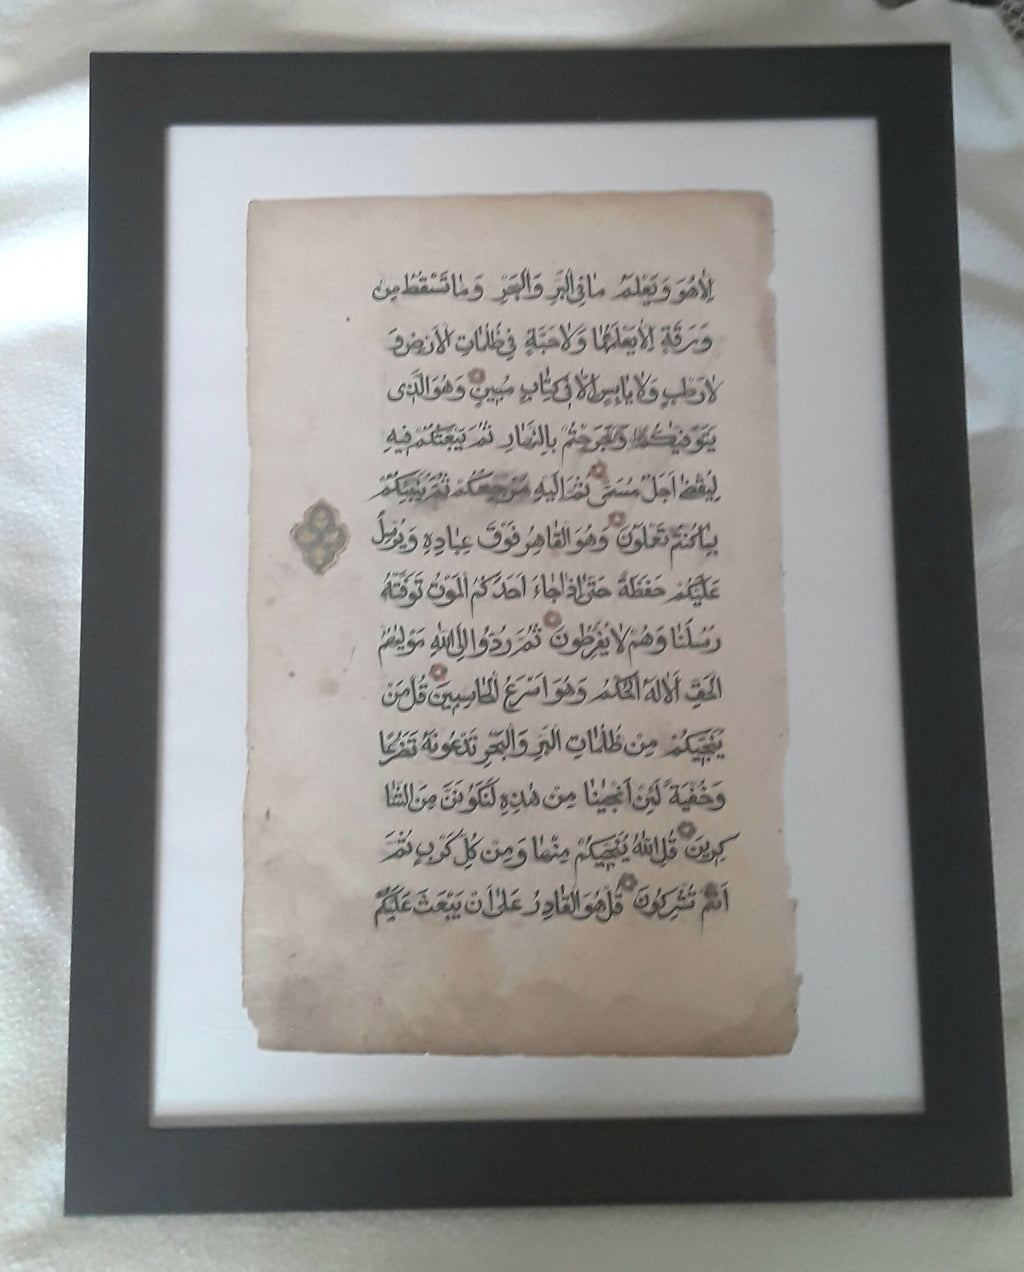 إِلَّا هُوَ وَيَعْلَمُ مَا فِي الْبَرِّ وَالْبَحْرِ وَمَا تَسْقُطُ مِنْ
وَرَقَةٍ إِلَّا يَعْلَمُهَا وَلَا حَبَّةٍ فِي ظُلُمَاتِ الْأَرْضِ وَ
لَا رَطْبٍ وَلَا يَابِسٍ إِلَّا فِي كِتَابٍ مُبِينٍ وَهُوَ الَّذِي
يَتَوَفَّيكُمْ جَرَحْتُمْ بِالنَّهَارِ ثُمَّ يَبْعَثُكُمْ فِيهِ
لِيُقْضَى أَجَلٌ مُسَمًّى ثُمَّ إِلَيْهِ مَرْجِعُكُمْ ثُمَّ يُنَبِّئُكُمْ
بِمَا كُنْتُمْ تَعْمَلُونَ وَهُوَ الْقَاهِرُ فَوْقَ عِبَادِهِ وَيُرْسِلُ
عَلَيْكُمْ حَفَظَةً حَتَّى إِذَا جَاءَ أَحَدَكُمُ الْمَوْتُ تَوَفَّتْهُ
رُسُلُنَا وَهُمْ لَا يُفَرِّطُونَ ثُمَّ رُدُّوا إِلَى اللَّهِ مَوْلَيهُمُ
الْحَقِّ أَلَا لَهُ الْحُكْمُ وَهُوَ أَسْرَعُ الْحَاسِبِينَ قُلْ مَنْ
يُنَجِّيكُمْ مِنْ ظُلُمَاتِ الْبَرِّ وَالْبَحْرِ تَدْعُونَهُ تَضَرُّعًا
وَخُفْيَةً لَئِنْ أَنْجَيْنَا مِنْ هَذِهِ لَنَكُونَنَّ مِنَ الشَّا
كِرِينَ قُلِ اللَّهُ يُنَجِّيكُمْ مِنْهَا وَمِنْ كُلِّ كَرْبٍ ثُمَّ
أَنْتُمْ تُشْرِكُونَ قُلْ هُوَ الْقَادِرُ عَلَى أَنْ يَبْعَثَ عَلَيْكُمْ